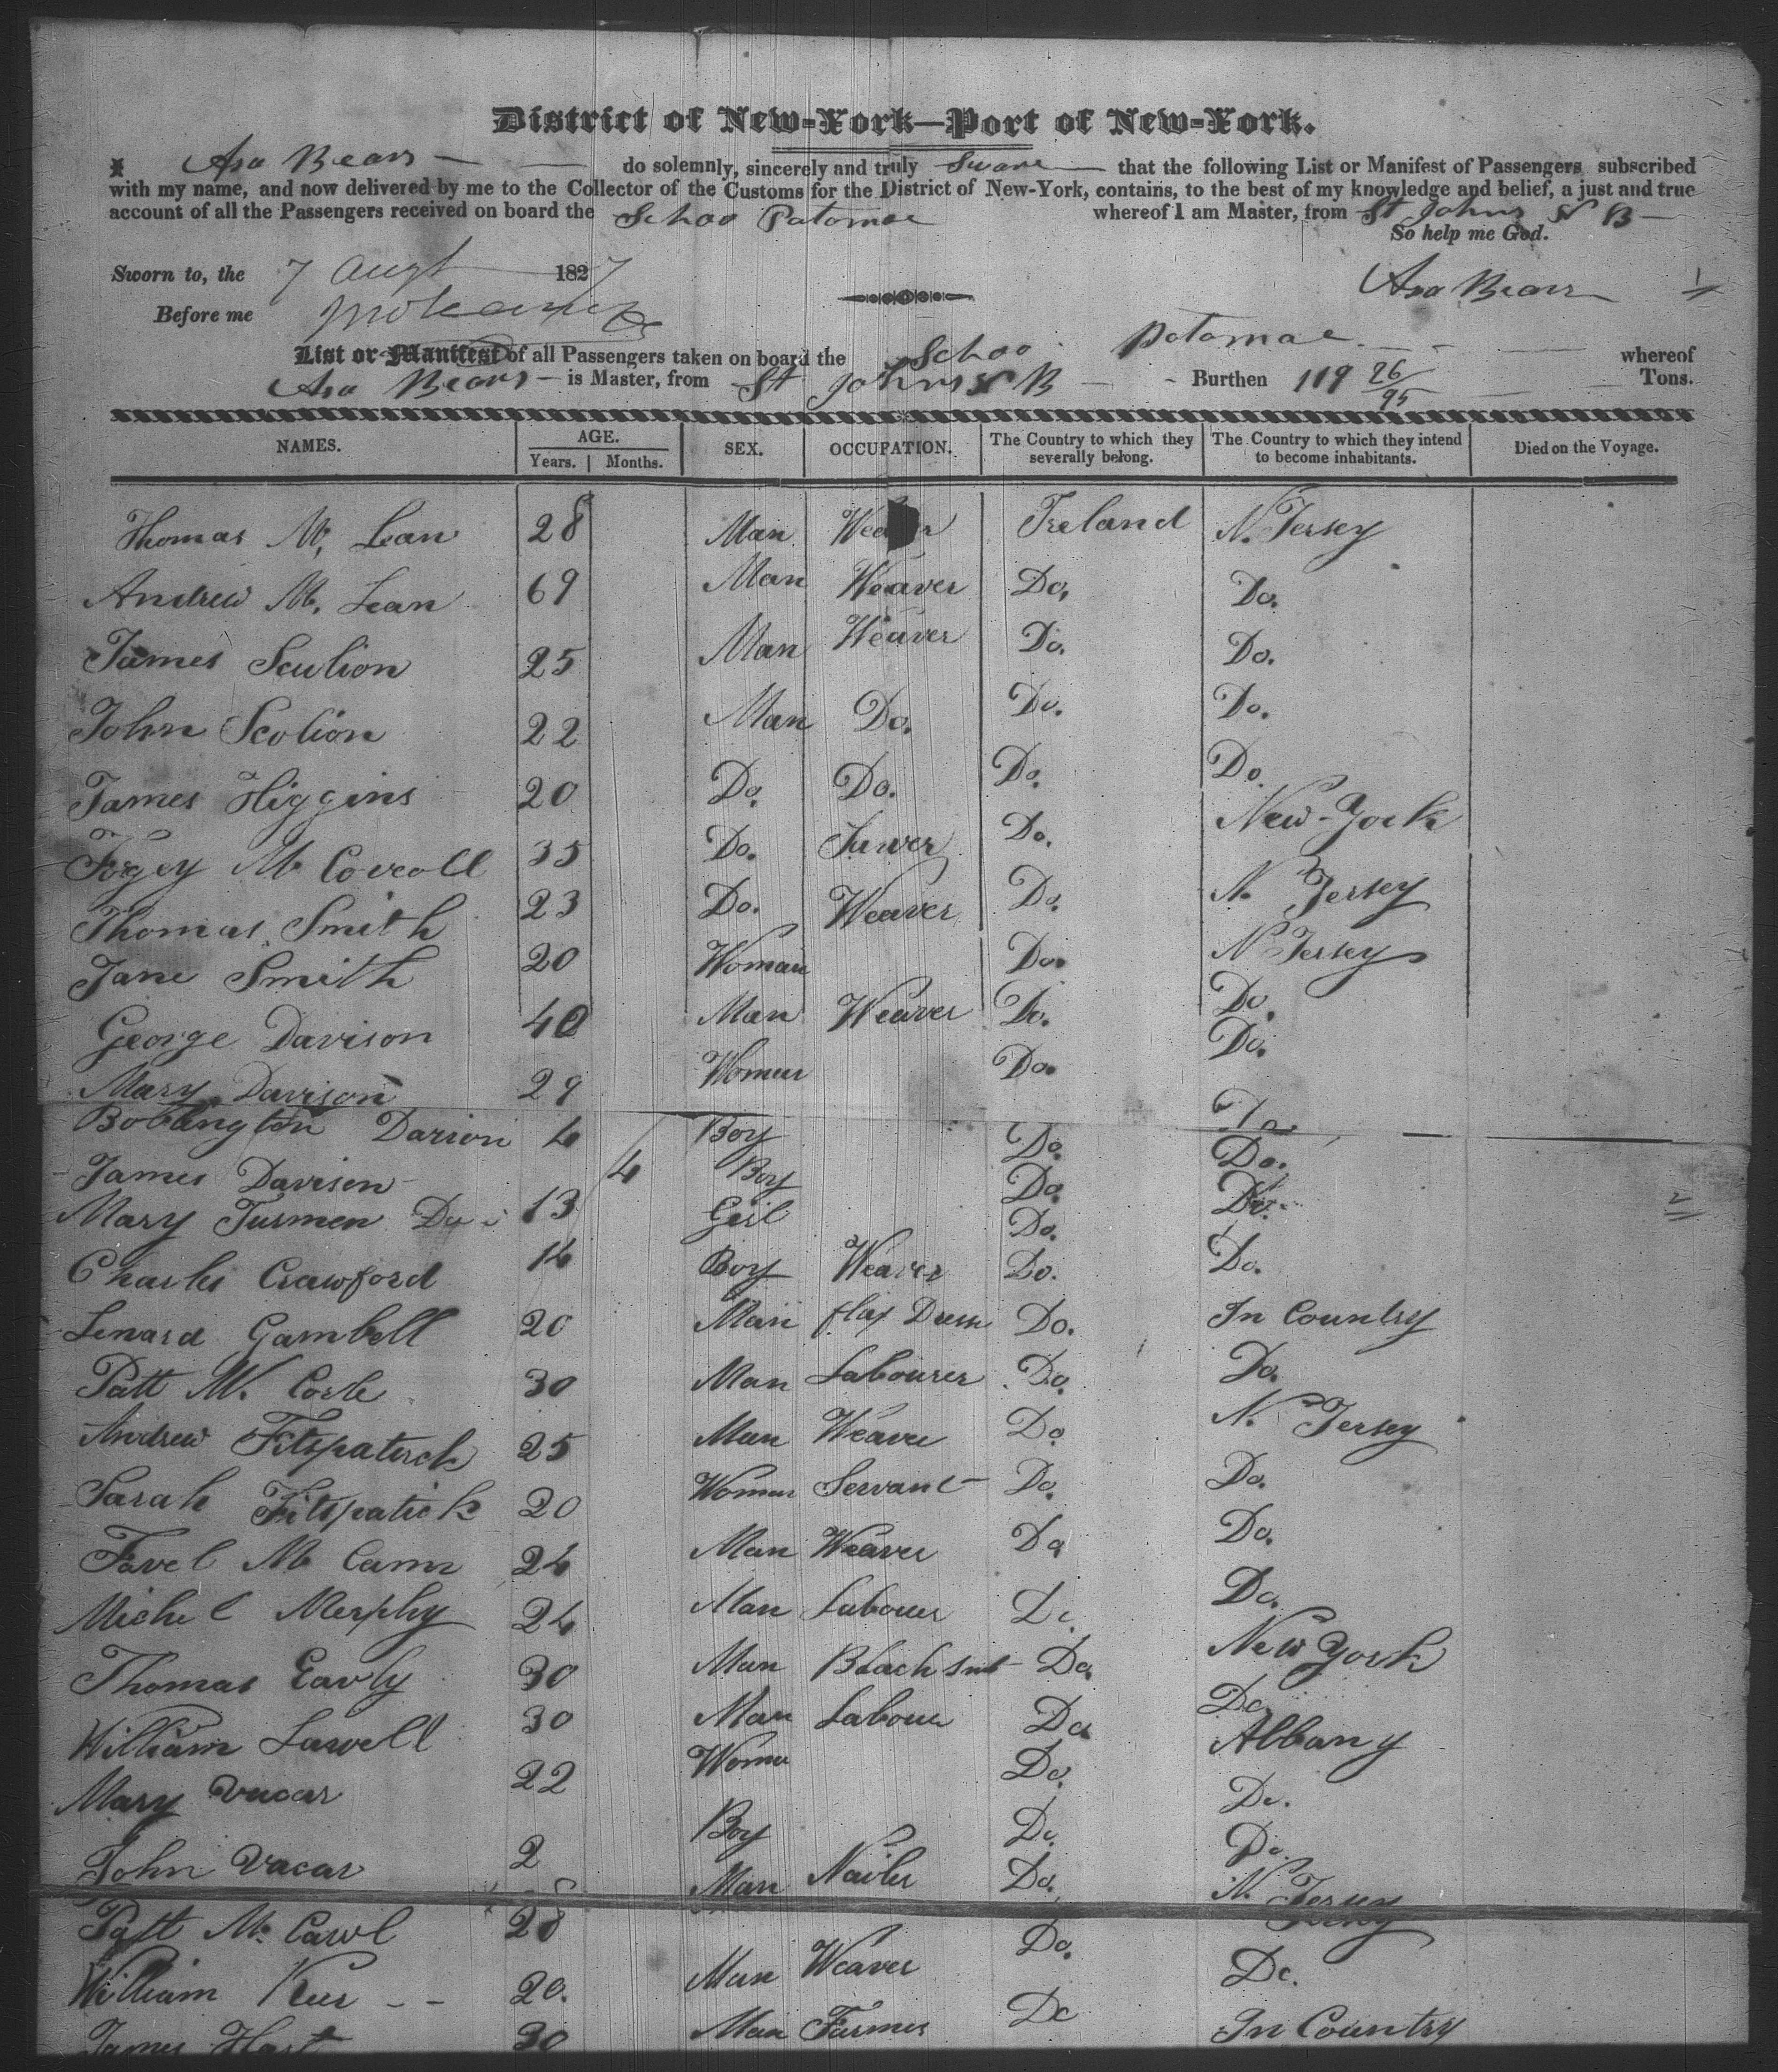 District of New-York—Port of New-York.
I Asa Bears do solemnly, sincerely and truly Sware that the following List or Manifest of Passengers subscribed
with my name, and now delivered by me to the Collector of the Customs for the District of New-York, contains, to the best of my knowledge and belief, a just and true
account of all the Passengers received on board the Schoo Patomac whereof I am Master, from St Johns N B
So help me God.
Sworn to, the 7 Augt 1827 Asa Bears
Before me
List or Manifest of all Passengers taken on board the Schoo. Potomac whereof
Asa Bears is Master, from St Johns N B Burthen 119 26/95 Tons.
NAMES. AGE. Years. Months. SEX. OCCUPATION. The Country to which they severally belong. The Country to which they intend to become inhabitants. Died on the Voyage.
Thomas Mc Lean 28 Man Weaver Ireland N. Jersey
Andrew Mc Lean 69 Man Weaver Do. Do.
James Sculion 25 Man Weaver Do. Do.
John Scolion 22 Man Do. Do. Do.
James Higgins 20 Do. Do. Do. Do.
Mc 35 Do. Do. New-York
Thomas Smith 23 Do. Weaver Do. N. Jersey
Jane Smith 20 Woman Do. N Jersey
George Davison 40 Man Weaver Do. Do.
Mary Davison 29 Woman Do. Do.
Bobbington Darison 4 Boy Do. Do.
James Davisen 4 Boy Do. Do.
Mary Turmen Do 13 Girl Do. Do.
Charles Crawford 14 Boy Weaver Do. Do.
Lenard Gambell 20 Man flax Dress Do. In Country
Patt Mc 30 Man Labourer Do. Do.
Andrew Fitspatrick 25 Man Weaver Do. N. Jersey
Sarah Fitspatick 20 Woman Servant Do. Do.
Mc Cann 24 Man Weaver Do Do.
Michel Merphy 24 Man Labouer Do. Do.
Thomas Early 30 Man Blacksmt Do. New York
William Lawell 30 Man Labouer Do Do
Mary Vacar 22 Woma Do. Albany
John Vacar 2 Boy Do. Do.
Patt Mc Carol 28 Man Nailer Do. N. Jersey
William Kur 20. Man Weaver Do. Do.
James Hart 30 Man Farmer Do In Country